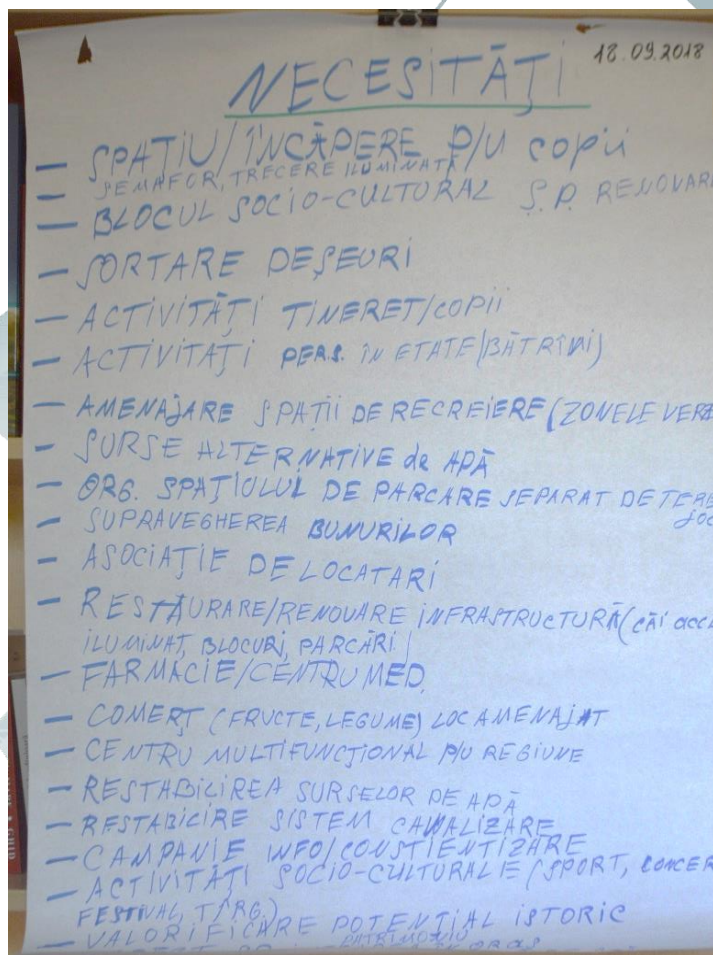 18.09.2018
NECESITĂȚI
— SPAȚIU/ÎNCĂPERE P/U COPII
— SEMAFOR, TRECERE ILUMINATĂ
— BLOCUL SOCIO-CULTURAL Ș.P. RENOVARE
— SORTARE DEȘEURI
— ACTIVITĂȚI TINERET/COPII
— ACTIVITAȚI PERS. ÎN ETATE/BĂTRÎNI)
— AMENAJARE SPAȚII DE RECREIERE (ZONELE VERZ
— SURSE ALTERNATIVE de APĂ
— ORG. SPAȚIULUI DE PARCARE SEPARAT DE TERE
joc
— SUPRAVEGHEREA BUNURILOR
— ASOCIAȚIE DE LOCATARI
— RESTAURARE/RENOVARE INFRASTRUCTURĂ (CĂI acc
ILUMINAT, BLOCURI, PARCĂRI)
— FARMACIE/CENTRU MED.
— COMERȚ (FRUCTE, LEGUME) LOC AMENAJAT
— CENTRU MULTIFUNCȚIONAL P/U REGIUNE
— RESTABILIREA SURSELOR DE APĂ
— RESTABILIRE SISTEM CANALIZARE
— CAMPANIE INFO/CONȘTIENTIZARE
— ACTIVITĂȚI SOCIO-CULTURALE (SPORT, CONCER
FESTIVAL, TÎRG.)
— VALORIFICARE POTENȚIAL ISTORIC
PATRIMONIU
ORAȘ